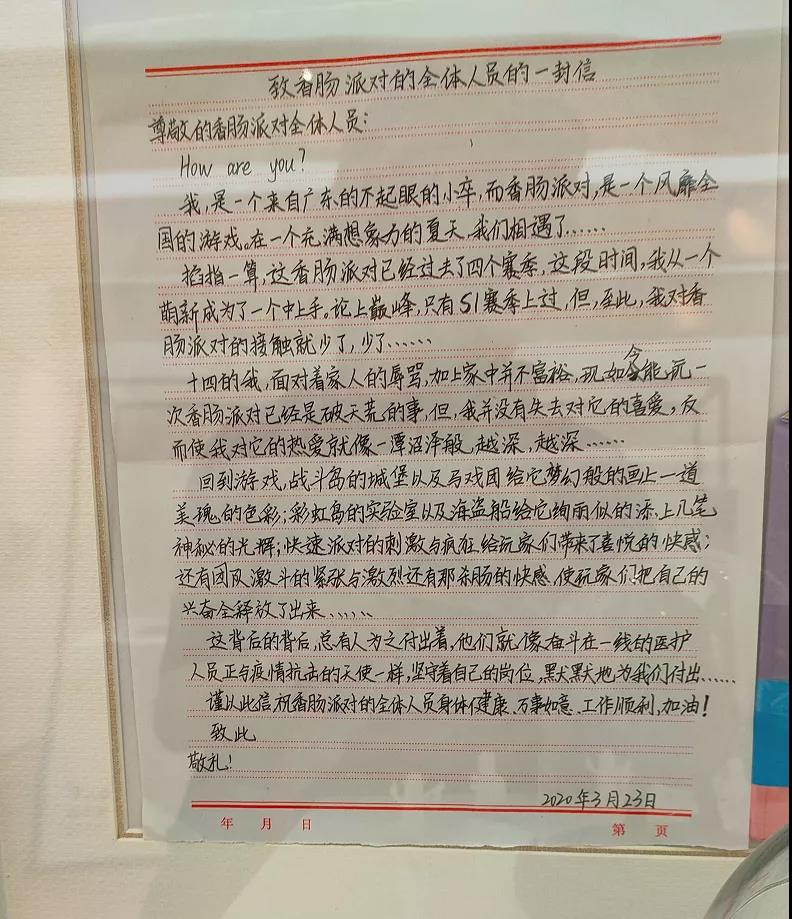 致香肠派对的全体人员的一封信
尊敬的香肠派对全体人员:
How are you?
我,是一个来自广东的不起眼的小卒,而香肠派对,是一个风靡全
国的游戏。在一个充满想象力的夏天,我们相遇了……
掐指一算,这香肠派对已经过去了四个赛季,这段时间,我从一个
萌新成为了一个中上手。论上巅峰,只有S1赛季上过,但,至此,我对香
肠派对的接触就少了,少了……
十四的我,面对着家人的辱骂,加上家中并不富裕,现如今能玩一
次香肠派对已经是破天荒的事,但,我并没有失去对它的喜爱,反
而使我对它的热爱就像一潭沼泽般,越深,越深……
回到游戏,战斗岛的城堡以及马戏团给它梦幻般的画上一道
美瑰的色彩;彩虹岛的实验室以及海盗船给它绚丽似的添上几笔
神秘的光辉;快速派对的刺激与疯狂给玩家们带来了喜悦的快感;
还有团队激斗的紧张与激烈还有那杀肠的快感,使玩家们把自己的
兴奋全释放了出来……
这背后的背后,总有人为之付出着,他们就像奋斗在一线的医护
人员正与疫情抗击的天使一样,坚守着自己的岗位,默默地为我们付出……
谨以此信祝香肠派对的全体人员身体健康、万事如意、工作顺利,加油!
致此
敬礼!
2020年3月23日
年 月 日 第 页